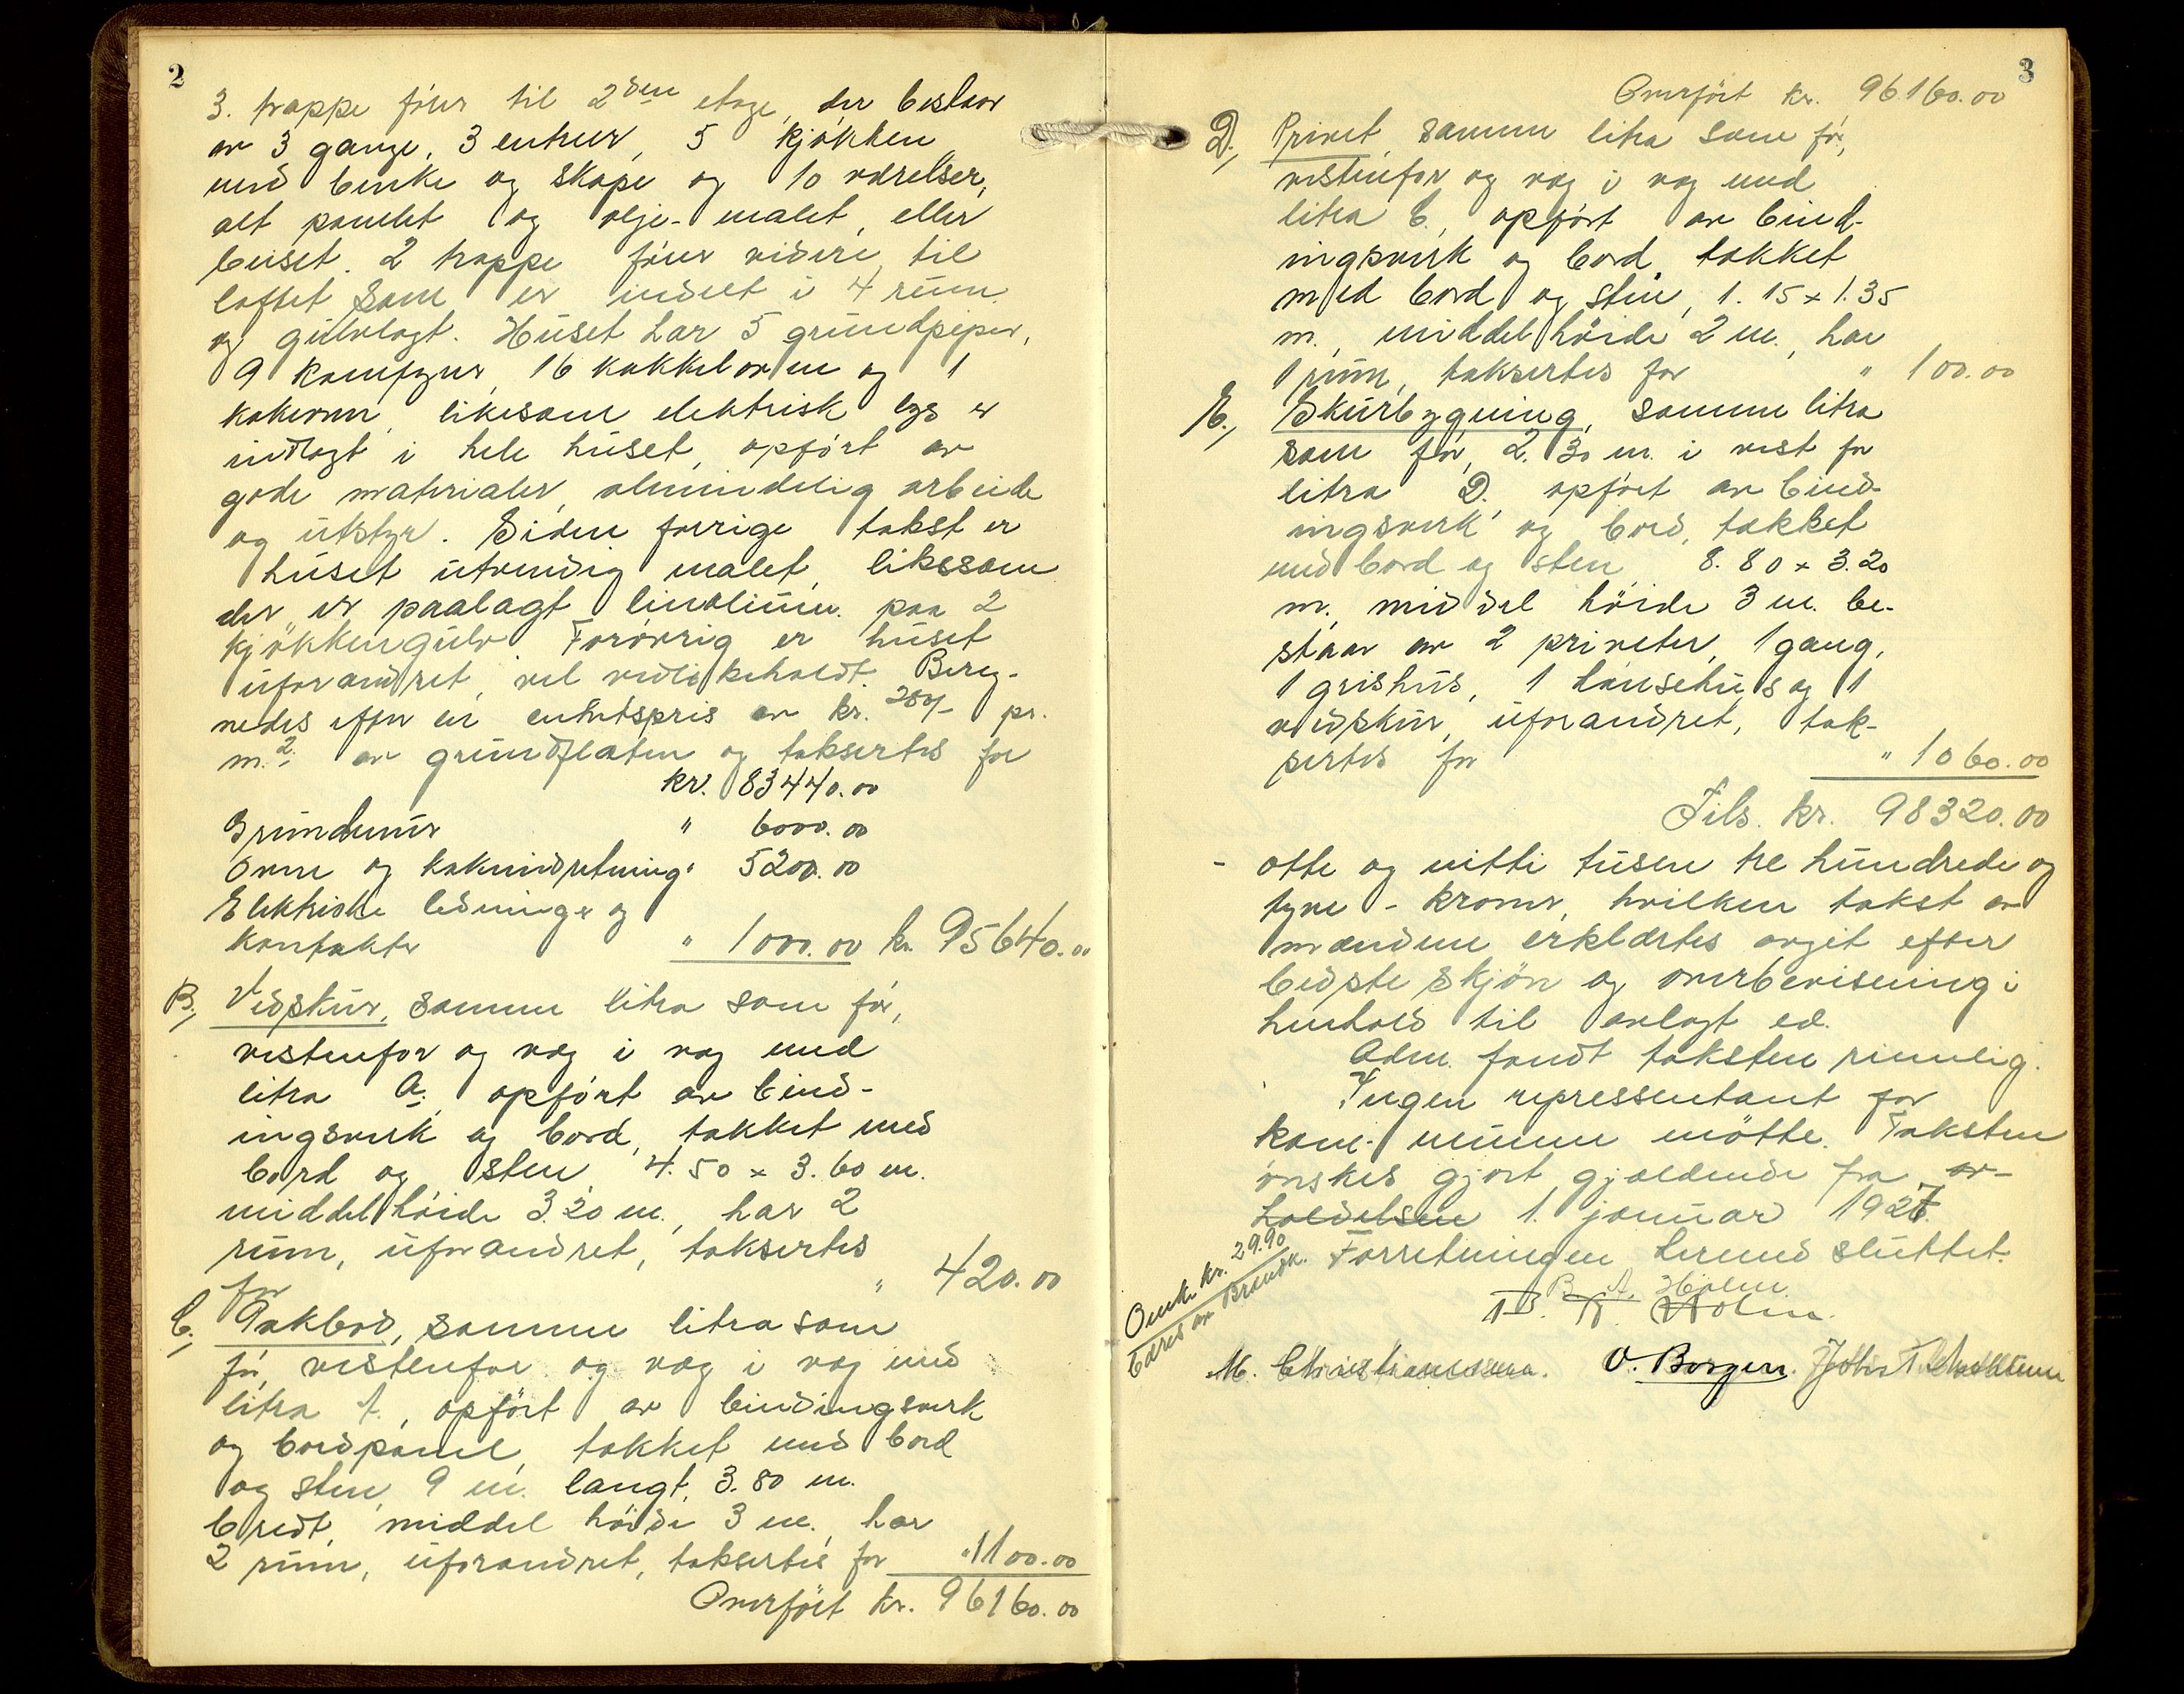 2
3. trappe fører til 2den etage, der bestaar
av 3 gange, 3 entreer, 5 kjøkken
med benke og skape og 10 værelser,
alt panelet og olje-malet, eller
beiset. 2 trappe fører videre til
loftet som er indelt i 4 rum
og gulvlagt. Huset har 5 grundpiper,
9 komfyrer, 16 kakkelovne og 1
kokeovn, likesom elektrisk lys er
indlagt i hele huset, opført av
gode materialer, almindelig arbeide
og utstyr. Siden forrige takst er
huset utvendig malet, likesom
der er paalagt linolium paa 2
kjøkkengulv. Forøvrig er huset
uforandret, vel vedlikeholdt. Bereg-
nedes efter en enhetspris av kr. pr.
m.2 av grundflaten og taksertes for
kr. 83440.00
Grundmur " 6000.00
Ovne og kokeindretning " 5200.00
Elektriske ledninger og
kontakter " 1000.00 kr. 95640.00
B., Vedskur, samme litra som før,
vestenfor og væg i væg med
litra A., opført av bind-
ingsverk og bord, tækket med
bord og sten, 4.50 x 3.60 m.
middelhøide 3.20 m., har 2
rum, uforandret, taksertes
for " 420.00
C., Takbod, samme litra som
før, vestenfor og væg i væg med
litra A., opført av bindingsverk
og bordpanel, tækket med bord
og sten, 9 m. langt, 3.80 m.
bredt, middel høide 3 m., har
2 rum, uforandret, taksertes for " 1100.00
Overført kr. 96160.00
3
Overført kr. 96160.00
D., Privet, samme litra som før,
vestenfor og væg i væg med
litra C., opført av bind-
ingsverk og bord, tækket
med bord og sten, 1.15 x 1.35
m., middelhøide 2 m., har
1 rum, taksertes for " 100.00
E., Skurbygning, samme litra
som før, 2.30 m. i vest for
litra D., opført av bind-
ingsverk og bord, tækket
med bord og sten 8.80 x 3.20
m., middel høide 3 m. be-
staar av 2 priveter, 1 gang,
1 grishus, 1 hønsehus og 1
vedskur, uforandret, tak-
sertes for " 1060.00
Tils. kr. 98320.00
- otte og nitti tusen tre hundrede og
tyve - kroner, hvilken takst av
mændene erklærtes avgit efter
bedste skjøn og overbevisning i
henhold til avlagt ed.
Adm. fandt taksten rimelig.
Ingen repressentant for
kom-munen møtte. Taksten
ønskes gjort gjældende fra av-
holdelsen 1. januar 1927.
Forretningen hermed sluttet.
Omk. kr. 29.90
bæres av Brandk.
B. A. Holm
B. A. Holm.
M. Christiansen. O. Borgen. Johs